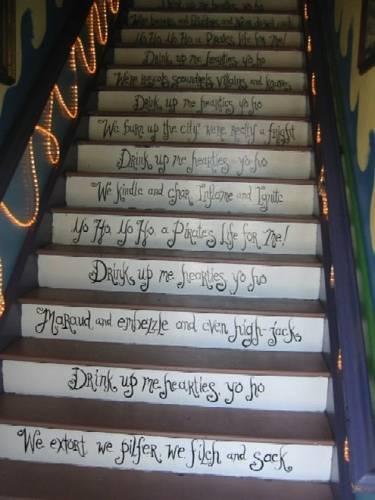 Drink up me hearties yo ho
We're beggars and blighters and Ne'er do-well cads
Yo Ho, Yo Ho, a Pirates life for me!
Drink up me hearties, yo ho
We're rascals, scoundrels, villains, and knaves,
Drink, up me hearties yo ho
We burn up the city, we're really a fright
Drink up me hearties, yo ho
We kindle and char, Inflame and Ignite
Yo Ho, Yo Ho, a Pirate's Life for Me!
Drink up me hearties, yo ho
Maraud and embezzle and even high-jack
Drink up me hearties, yo ho
We extort we pilfer, we filch and sack